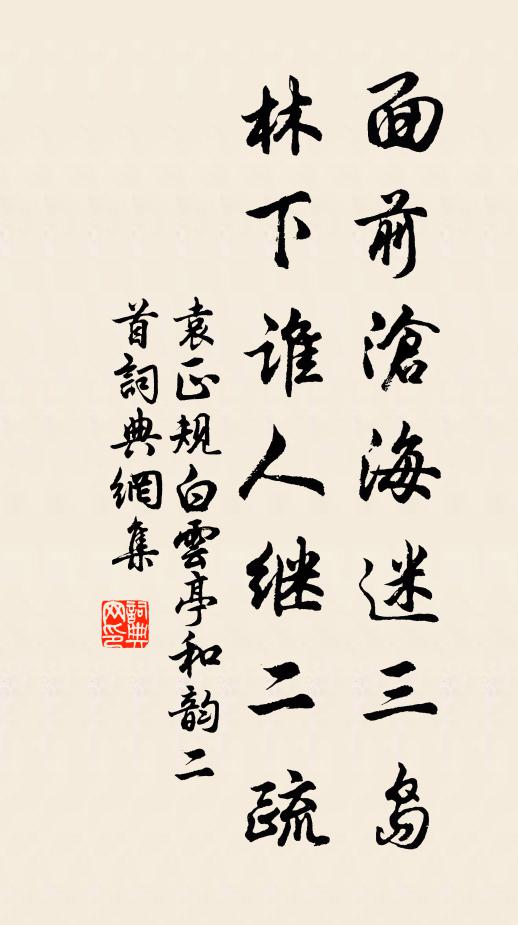 面前滄海迷三岛
林下谁人继二疏
袁正规白雲亭和韵二
首詞典網集
詞典网印